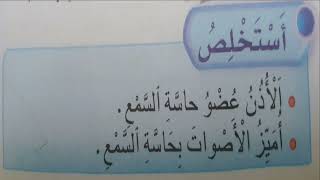 أَسْتَخْلِصُ
اَلْأُذُنُ عُضْوُ حاسَّةِ ٱلسَّمْعِ.
أُمَيِّزُ ٱلْأَصْواتَ بِحَاسَّةِ ٱلسَّمْعِ.